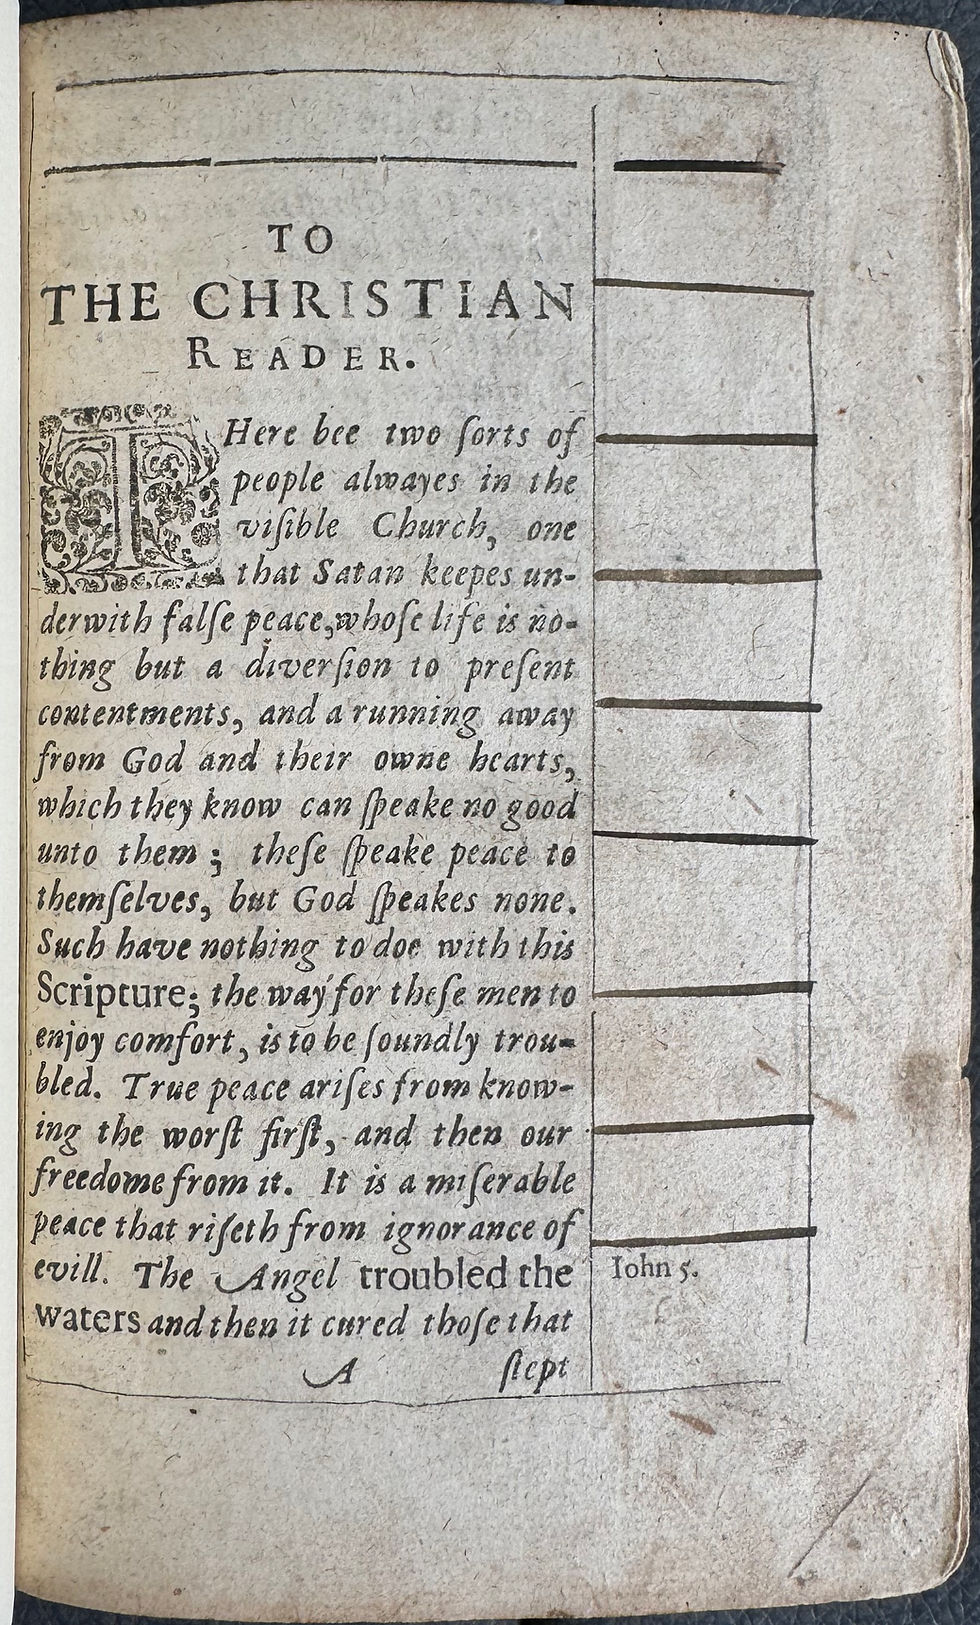 TO
THE CHRISTIAN
READER.
THere bee two ſorts of
people alwayes in the
viſible Church, one
that Satan keepes un-
derwith falſe peace,whoſe life is no-
thing but a diverſion to preſent
contentments, and a running away
from God and their owne hearts,
which they know can ſpeake no good
unto them ; theſe ſpeake peace to
themſelves, but God ſpeakes none.
Such have nothing to doe with this
Scripture; the way for theſe men to
enjoy comfort, is to be ſoundly trou-
bled. True peace ariſes from know-
ing the worſt firſt, and then our
freedome from it. It is a miſerable
peace that riſeth from ignorance of
evill. The Angel troubled the
Iohn 5.
waters and then it cured thoſe that
A ſtept